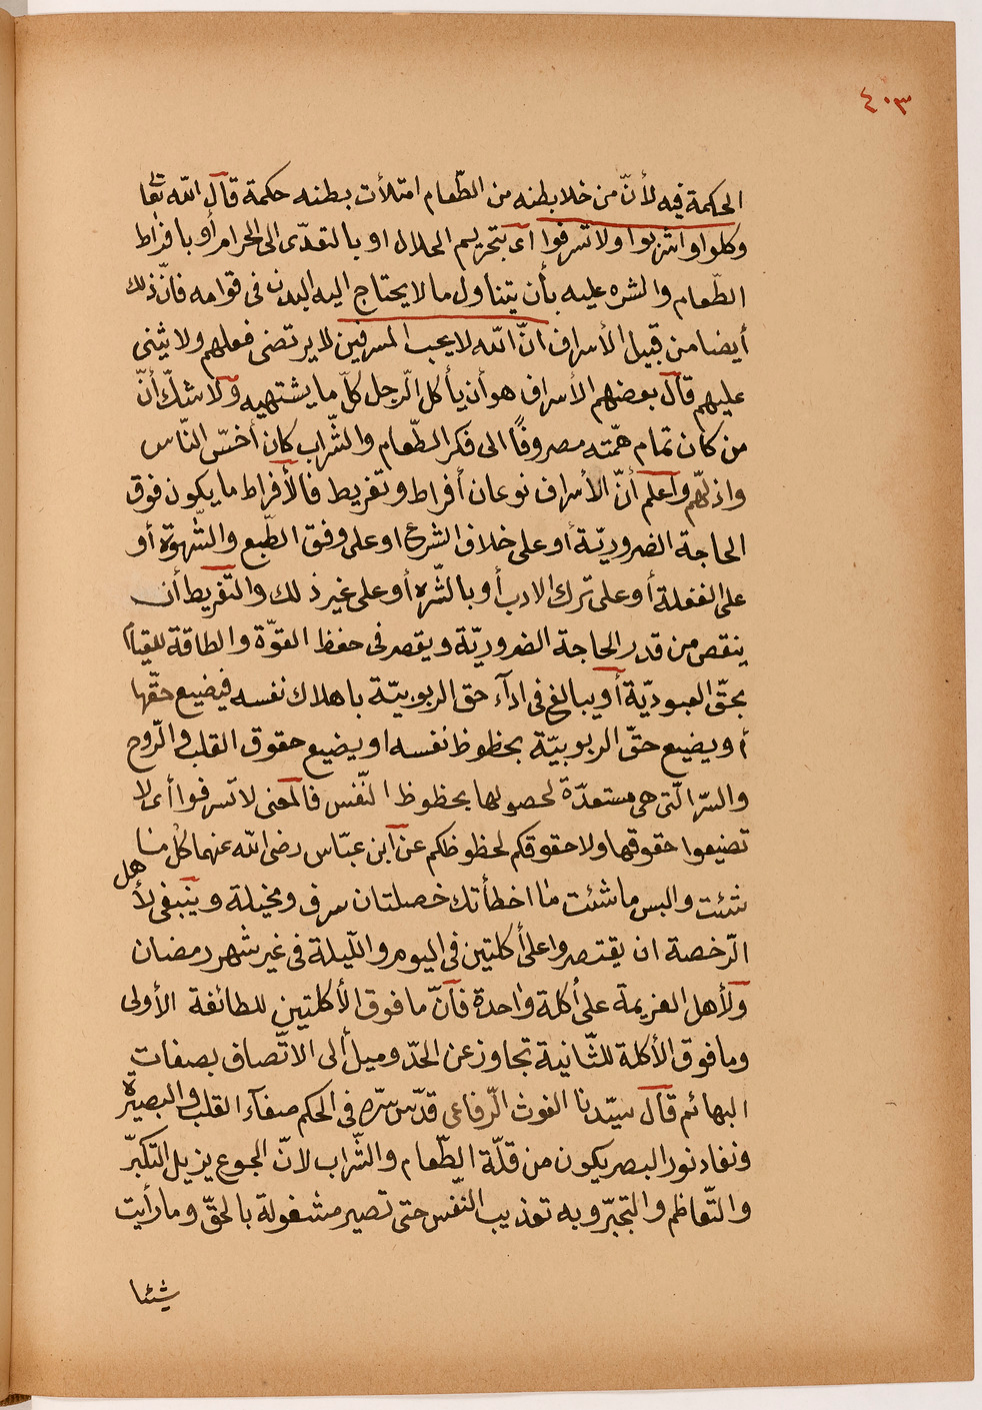 ٤٠٣
الحكمة فيه لأنّ من خلا بطنه من الطّعام امتلأت بطنه حكمة قال الله تعا
وكلوا واشربوا ولا تسرفوا اى بتحريم الحلال او بالتعدّى الى الحرام أو بافراط
الطّعام والشره عليه بأن يتناول ما لا يحتاج اليه البدن فى قوامه فانّ ذلك
أيضا من قبيل الأسراف انّ الله لا يحب المسرفين لا يرتضى فعلهم ولا يثنى
عليهم قال بعضهم الأسراف هو أن يأكل الرّجل كلّ ما يشتهيه ولا شكّ أنّ
من كان تمام همّته مصروفًا الى فكر الطّعام والشّراب كان أخسّ النّاس
واذلّهم واعلم أنّ الأسراف نوعان أفراط وتفريط فالأفراط ما يكون فوق
الحاجة الضروريّة أو على خلاف الشرع او على وفق الطّبع والشّهوة أو
على الغفلة أو على ترك الادب أو بالشّره أو على غير ذلك والتّفريط أن
ينقص من قدر الحاجة الضروريّة ويقصر فى حفظ القوّة والطاقة للقيام
بحقّ العبوديّة أو يبالغ فى ادآء حق الربوبيّة باهلاك نفسه فيضيع حقّها
أو يضيع حقّ الربوبيّة بحظوظ نفسه او يضيع حقوق القلب والرّوح
والسّر الّتى هى مستعدّة لحصولها بحظوظ النّفس فالمعنى لا تسرفوا أى لا
تضيعوا حقوقها ولا حقوقكم لحظوظكم عن ابن عبّاس رضى الله عنهما كل ما
شئت والبس ما شئت ما اخطأتك خصلتان سرف ومخيلة وينبغى لأهل
الرّخصة ان يقتصروا على أكلتين فى اليوم واللّيلة فى غير شهر رمضان
ولأهل العزيمة على أكلة واحدة فانّ ما فوق الأكلتين للطائفة الأولى
وما فوق الأكلة للثّانية تجاوز عن الحدّ وميل ألى الاتّصاف بصفات
البهائم قال سيّدنا الغوث الرّفاعى قدّس سرّه فى الحكم صفآء القلب والبصيرة
ونفاد نور البصر يكون من قلّة الطّعام والشّراب لانّ الجوع يزيل التكبرّ
والتّعاظم والتجبّر وبه تعذيب النّفس حتى تصير مشغولة بالحقّ وما رأيت
شيئا